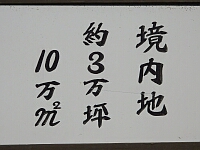 境内地
約3万坪
10万㎡